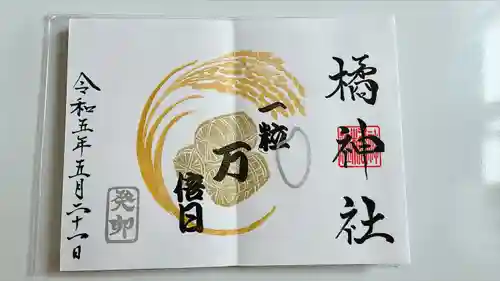 橘神社
一粒
万
倍日
令和五年五月二十一日
癸卯